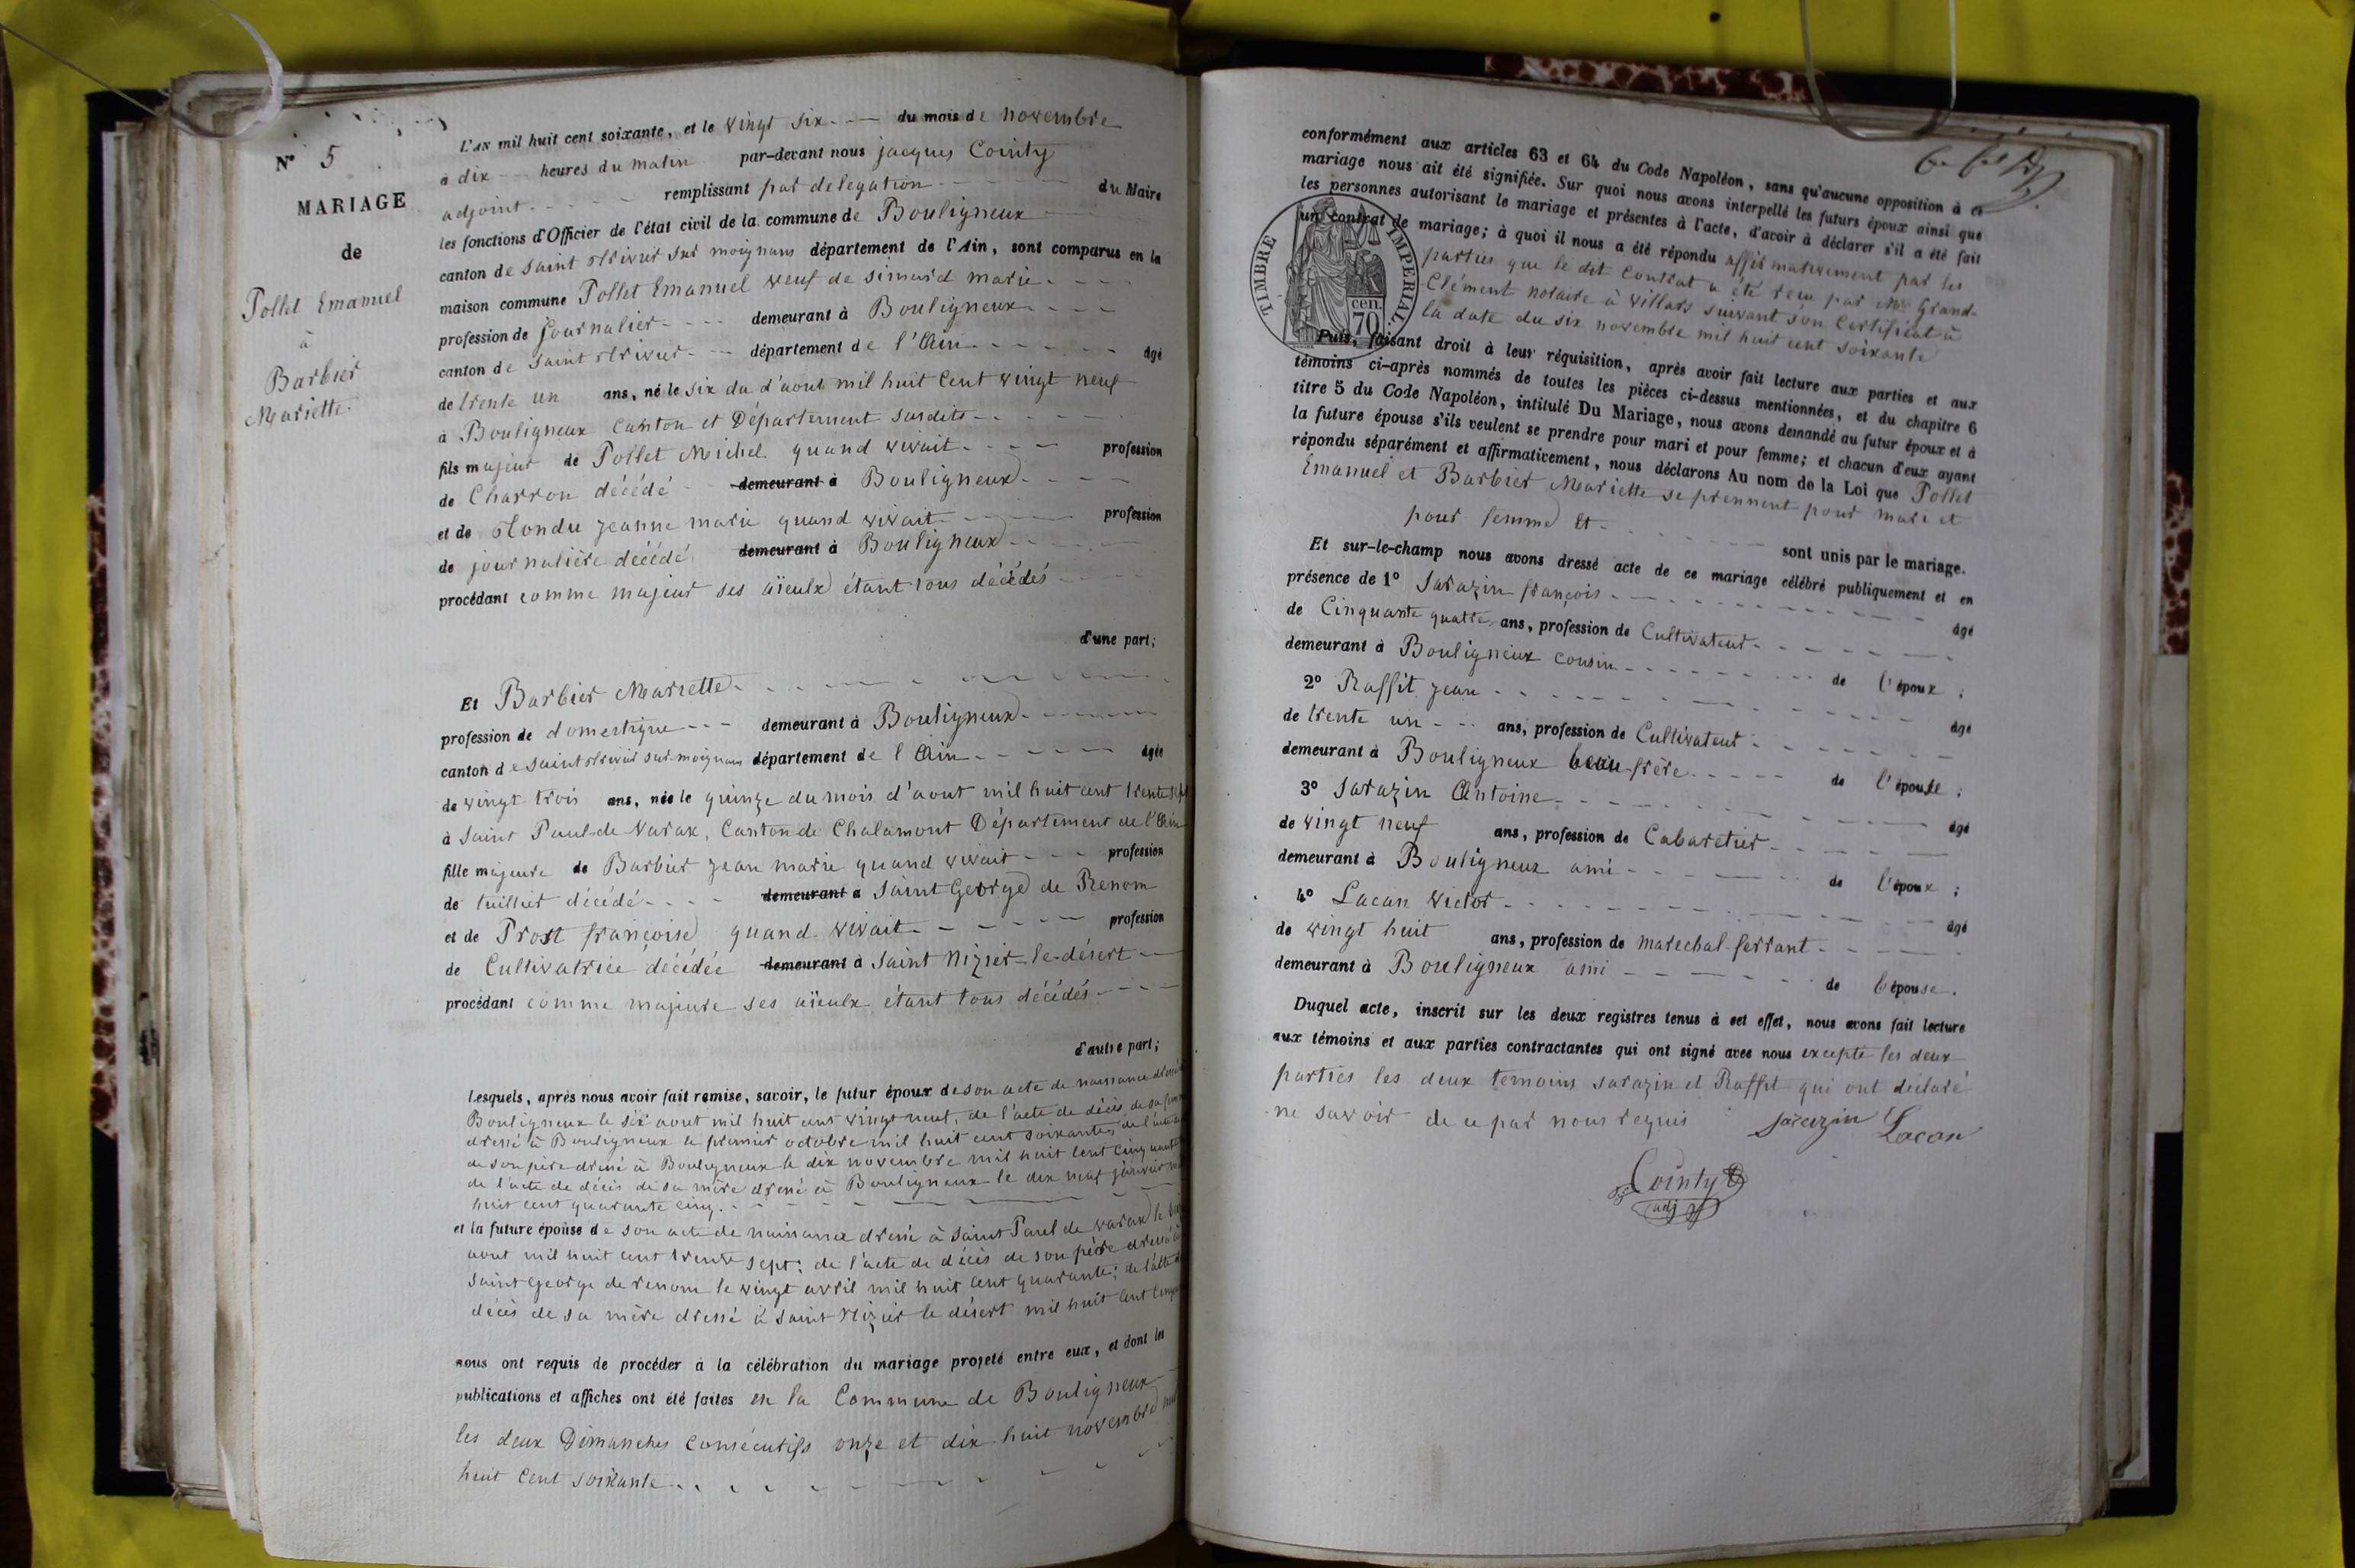 N° 5
MARIAGE
de
Pollet Emanuel
à
Barbier
Mariette
L'AN mil huit cent soixante, et le vingt six du mois de novembre
à dix heures du matin par-devant nous jacques Cointy
adjoint remplissant par delegation du Maire
les fonctions d'Officier de l'état civil de la commune de Bouligneux
canton de saint trivier sur moignans département de l'Ain, sont comparus en la
maison commune Pollet Emanuel veuf de simard marie
profession de journalier demeurant à Bouligneux
canton de saint trivier département de l'Ain âgé
de trente un ans, né le six du d'aout mil huit cent vingt neuf
à Bouligneux Canton et Département susdits
fils majeur de Pollet Michel quand vivait profession
de Charron décédé demeurant à Bouligneux
et de jeanne marie quand vivait profession
de journalière décédé demeurant à Bouligneux
procédant comme majeur ses aïeulx étant tous décédés
d'une part;
Et Barbier Mariette
profession de domestique demeurant à Bouligneux
canton de saint trivier sur moignans département de l'Ain âgée
de vingt trois ans, née le quinze du mois d'aout mil huit cent trente sept
à Saint Paul-de-Varax, Canton de Chalamont Département de l'Ain
fille majeure de Barbier jean marie quand vivait profession
de tuillier décédé demeurant à saint George de Renom
et de Prost françoise quand vivait profession
de Cultivatrice décédée demeurant à saint Nizier-le-désert
procédant comme majeure ses aïeulx étant tous décédés
d'autre part;
Lesquels, après nous avoir fait remise, savoir, le futur époux de son acte de naissance
Bouligneux le six aout mil huit cent vingt neuf, de l'acte de décès de sa
dressé à Bouligneux le premier octobre mil huit cent soixante, de l'acte
de son père dressé à Bouligneux le dix novembre mil huit cent cinquante
de l'acte de décès de sa mère dressé à Bouligneux le dix neuf janvier
huit cent quarante cinq.
et la future épouse de son acte de naissance dressé à Saint Paul de varax le
aout mil huit cent trente sept; de l'acte de décès de son père dressé à
Saint George de renom le vingt avril mil huit cent quarante; de l'acte
décès de sa mère dressé à saint Nizier le désert mil huit cent
nous ont requis de procéder à la célébration du mariage projeté entre eux, et dont les
publications et affiches ont été faites en la Commune de Bouligneux
les deux Dimanches consécutifs onze et dix huit novembre mil
huit cent soixante
conformément aux articles 63 et 64 du Code Napoléon, sans qu'aucune opposition à ce
mariage nous ait été signifiée. Sur quoi nous avons interpellé les futurs époux ainsi que
les personnes autorisant le mariage et présentes à l'acte, d'avoir à déclarer s'il a été fait
un contrat de mariage; à quoi il nous a été répondu affirmativement par les
parties que le dit Contrat a été reçu par Me Grand-
Clément notaire à Villars suivant son Certificat à
la date du six novembre mil huit cent soixante
TIMBRE IMPERIAL
cen.
70
Puis, faisant droit à leur réquisition, après avoir fait lecture aux parties et aux
témoins ci-après nommés de toutes les pièces ci-dessus mentionnées, et du chapitre 6
titre 5 du Code Napoléon, intitulé Du Mariage, nous avons demandé au futur époux et à
la future épouse s'ils veulent se prendre pour mari et pour femme; et chacun d'eux ayant
répondu séparément et affirmativement, nous déclarons Au nom de la Loi que Pollet
Emanuel et Barbier Mariette se prennent pour mari et
pour femme Et sont unis par le mariage.
Et sur-le-champ nous avons dressé acte de ce mariage célébré publiquement et en
présence de 1° Sarazin françois âgé
de Cinquante quatre ans, profession de Cultivateur
demeurant à Bouligneux cousin de l'époux;
2° Raffit jean âgé
de trente un ans, profession de Cultivateur
demeurant à Bouligneux beau-frère de l'épouse;
3° Sarazin Antoine âgé
de vingt neuf ans, profession de Cabaretier
demeurant à Bouligneux ami de l'époux;
4° Lacan Victor âgé
de vingt huit ans, profession de marechal-ferrant
demeurant à Bouligneux ami de l'épouse.
Duquel acte, inscrit sur les deux registres tenus à cet effet, nous avons fait lecture
aux témoins et aux parties contractantes qui ont signé avec nous excepté les deux
parties les deux temoins sarazin et Raffit qui ont déclaré
ne savoir de ce par nous requis sarazin Lacan
Cointy
adj